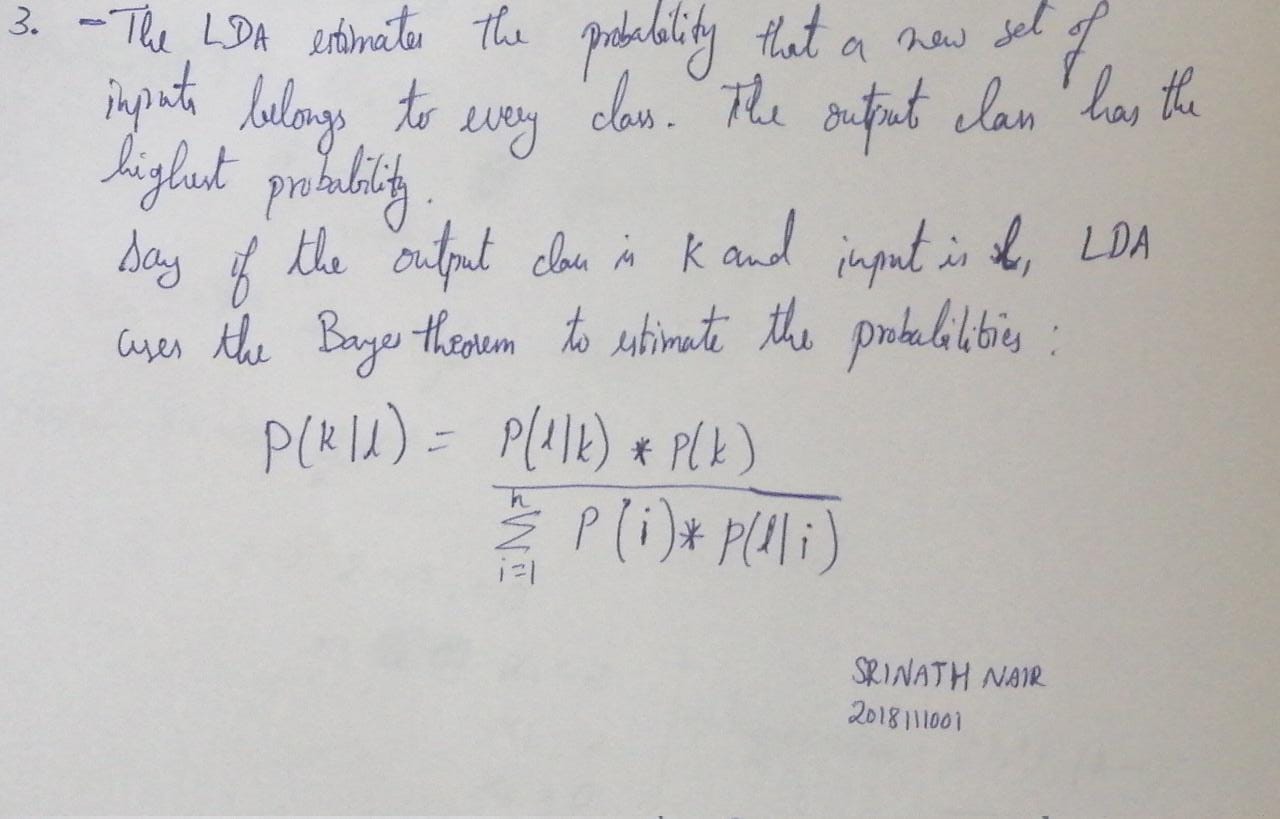 3. - The LDA estimates the probability that a new set of
inputs belongs to every class. The output class has the
highest probability.
Say if the output class is k and input is l, LDA
uses the Bayes theorem to estimate the probabilities :
P(k|l) = P(l|k) * P(k)
n
Σ P(i) * P(l|i)
i=1
SRINATH NAIR
2018111001